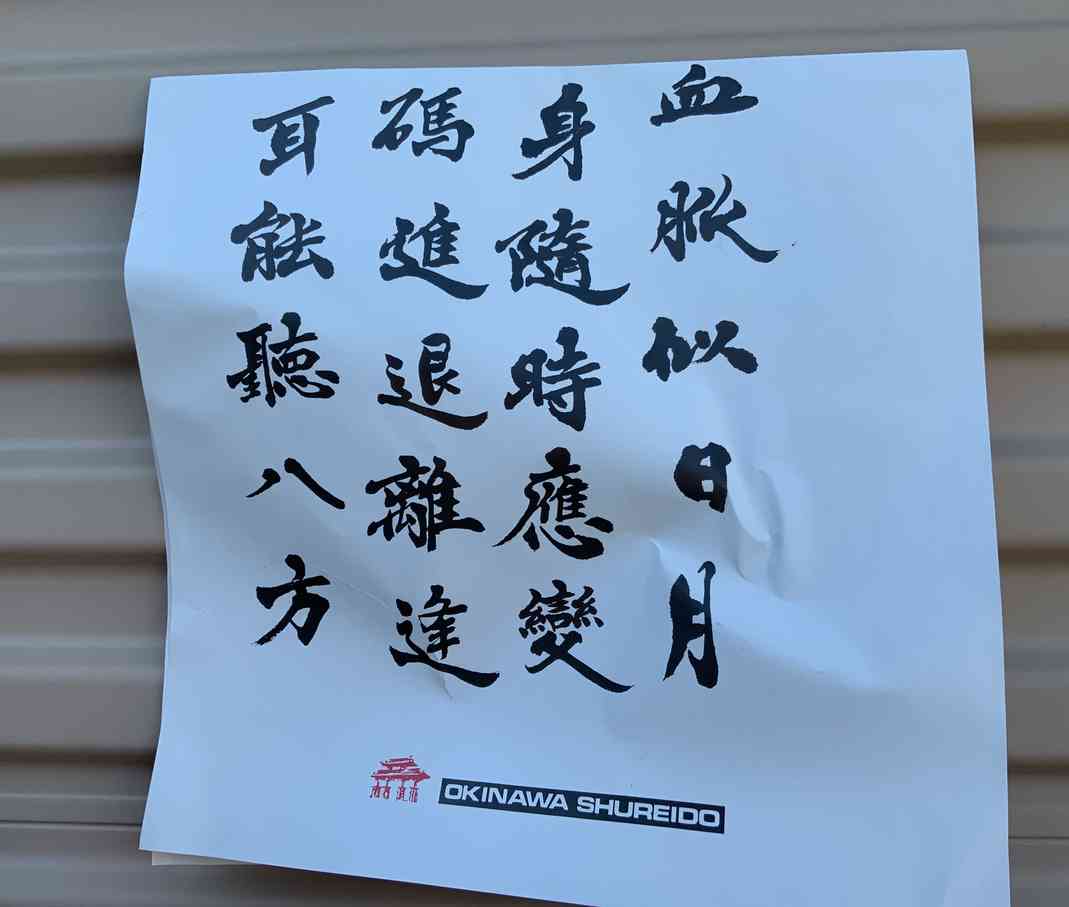 血脈似日月
身隨時應變
碼進退離逢
耳能聽八方
OKINAWA SHUREIDO